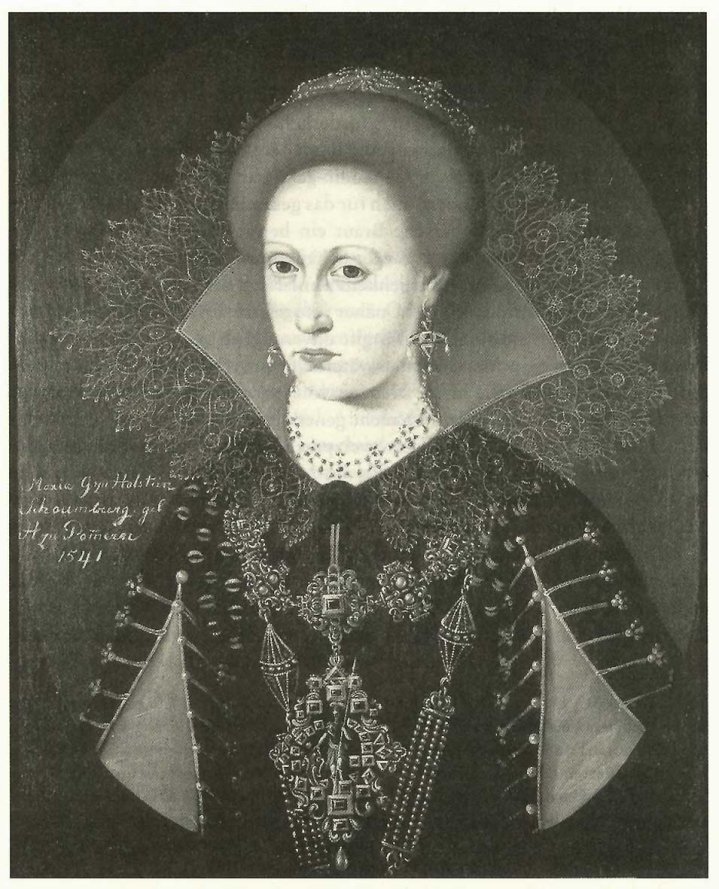 Maria G zu Holstein
Schoumburg, geb
H zu Pomern
1541